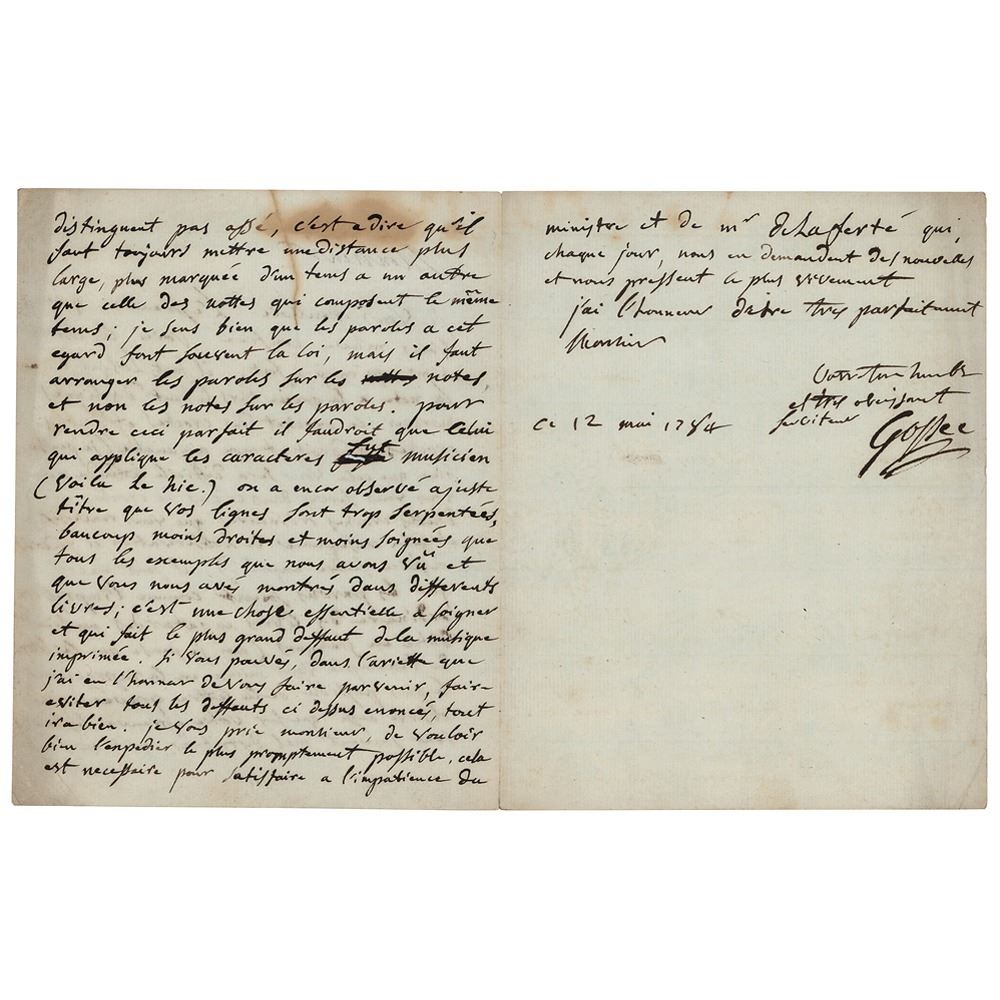 distinguent pas assé, c'est a dire qu'il
faut toujours mettre une distance plus
large, plus marquée d'un tems a un autre
que celle des nottes qui composent le même
tems; je sens bien que les paroles a cet
egard font souvent la loi, mais il faut
arranger les paroles sur les nottes notes,
et non les notes sur les paroles. pour
rendre ceci parfait il faudroit que celui
qui applique les caracteres fut musicien
(voila le hic.) on a encor observé a juste
tître que vos lignes sont trop serpentées,
baucoup moins droites et moins soignées que
tous les exemples que nous avons vû et
que vous nous avés montrés dans differents
livres; c'est une chose essentielle a soigner
et qui fait le plus grand deffaut de la musique
imprimée. si vous pouvés, dans l'ariette que
j'ai eu l'honneur de vous faire parvenir, faire
eviter tous les deffauts ci dessus enoncés, tout
ira bien. je vous prie monsieur, de vouloir
bien l'expedier le plus promptement possible, cela
est necessaire pour satisfaire a l'impatience du
ministre et de mr delaferté qui,
chaque jour, nous en demandent des nouvelles
et nous pressent le plus vivement
j'ai l'honneur d'etre tres parfaitement
Monsieur
Votre tres humble
et tres obeissant
serviteur
Gossec
ce 12 mai 1784